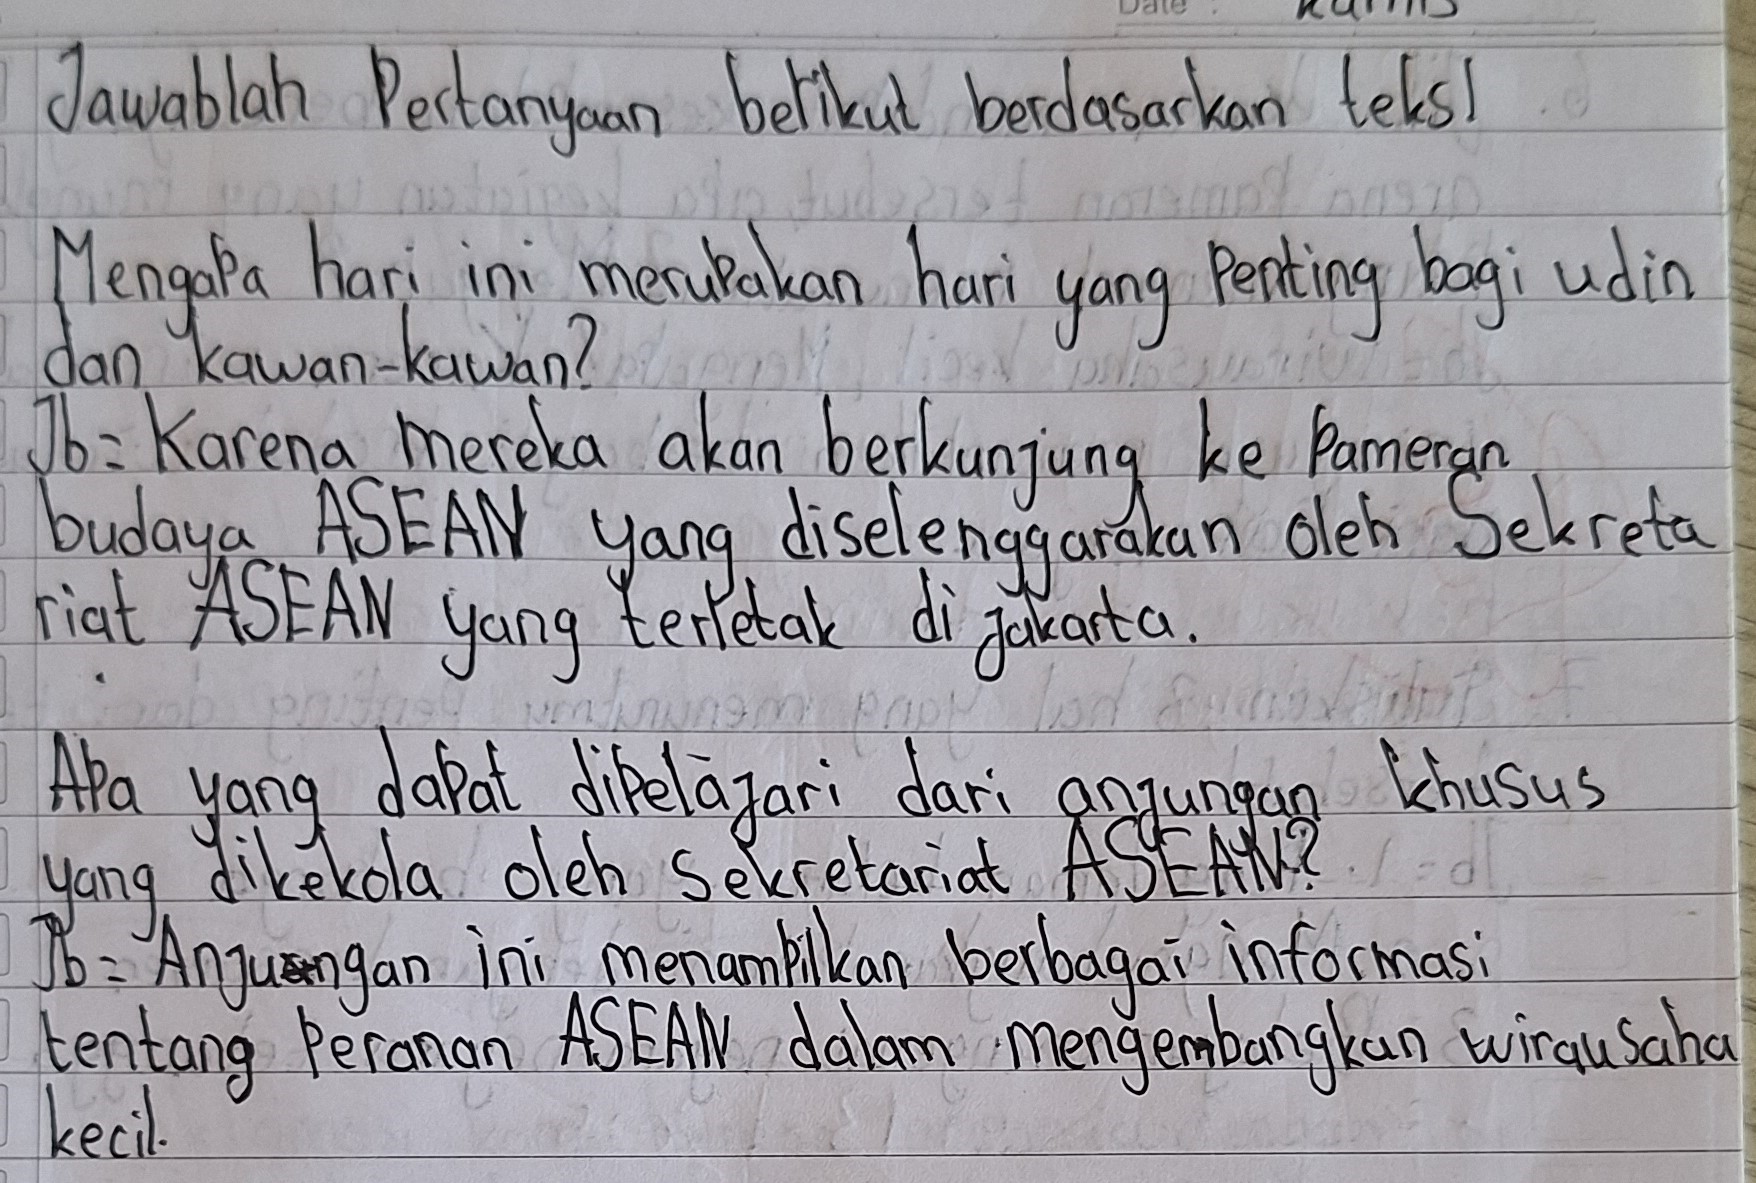 Date : Kamis
Jawablah Pertanyaan berikut berdasarkan teks!
Mengapa hari ini merupakan hari yang Penting bagi udin
dan kawan-kawan?
Jb= Karena mereka akan berkunjung ke Pameran
budaya ASEAN yang diselenggarakan oleh Sekreta
riat ASEAN yang terletak di jakarta.
Apa yang dapat dipelajari dari anjungan khusus
yang dikekola oleh Sekretariat ASEAN?
Jb= Anjuangan ini menampilkan berbagai informasi
tentang Peranan ASEAN dalam mengembangkan wirausaha
kecil.